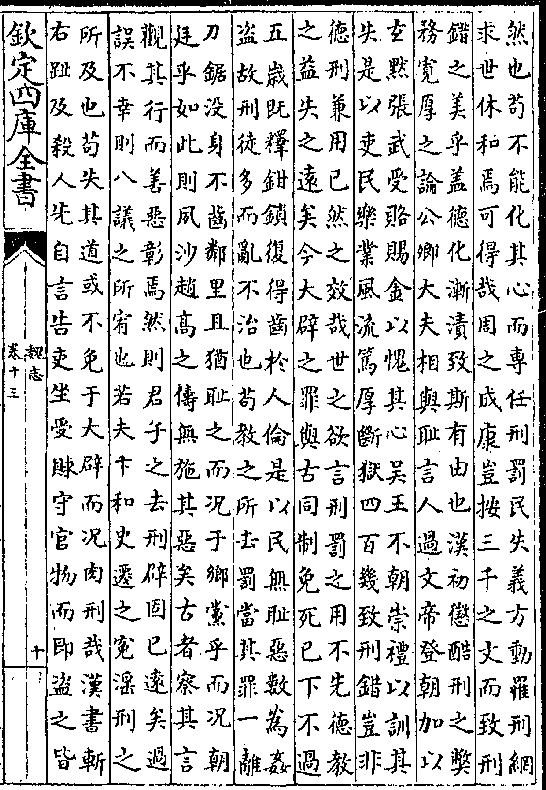 然也苟不能化其心而專任刑罰民失義方動罹刑網
求世休和焉可得哉周之成康豈按三千之文而致刑
錯之美乎蓋德化漸漬致斯有由也漢初懲酷刑之弊
務寬厚之論公卿大夫相與耻言人過文帝登朝加以
玄黙張武受賂賜金以愧其心吴王不朝崇禮以訓其
失是以吏民樂業風流篤厚斷獄四百幾致刑錯豈非
德刑兼用已然之效哉世之欲言刑罰之用不先德教
之益失之遠矣今大辟之罪與古同制免死已下不過
五歲既釋鉗鎖復得齒於人倫是以民無耻惡數為姦
盗故刑徒多而亂不治也苟教之所去罰當其罪一離
刀鋸没身不齒鄰里且猶耻之而况于鄉黨乎而况朝
廷乎如此則夙沙趙髙之儔無施其惡矣古者察其言
觀其行而善惡彰焉然則君子之去刑辟固已逺矣過
誤不幸則八議之所宥也若夫卞和史遷之寃淫刑之
所及也苟失其道或不免于大辟而况肉刑哉漢書斬
右趾及殺人先自言告吏坐受賕守官物而即盗之皆
欽定四庫全書
魏志
卷十三
十